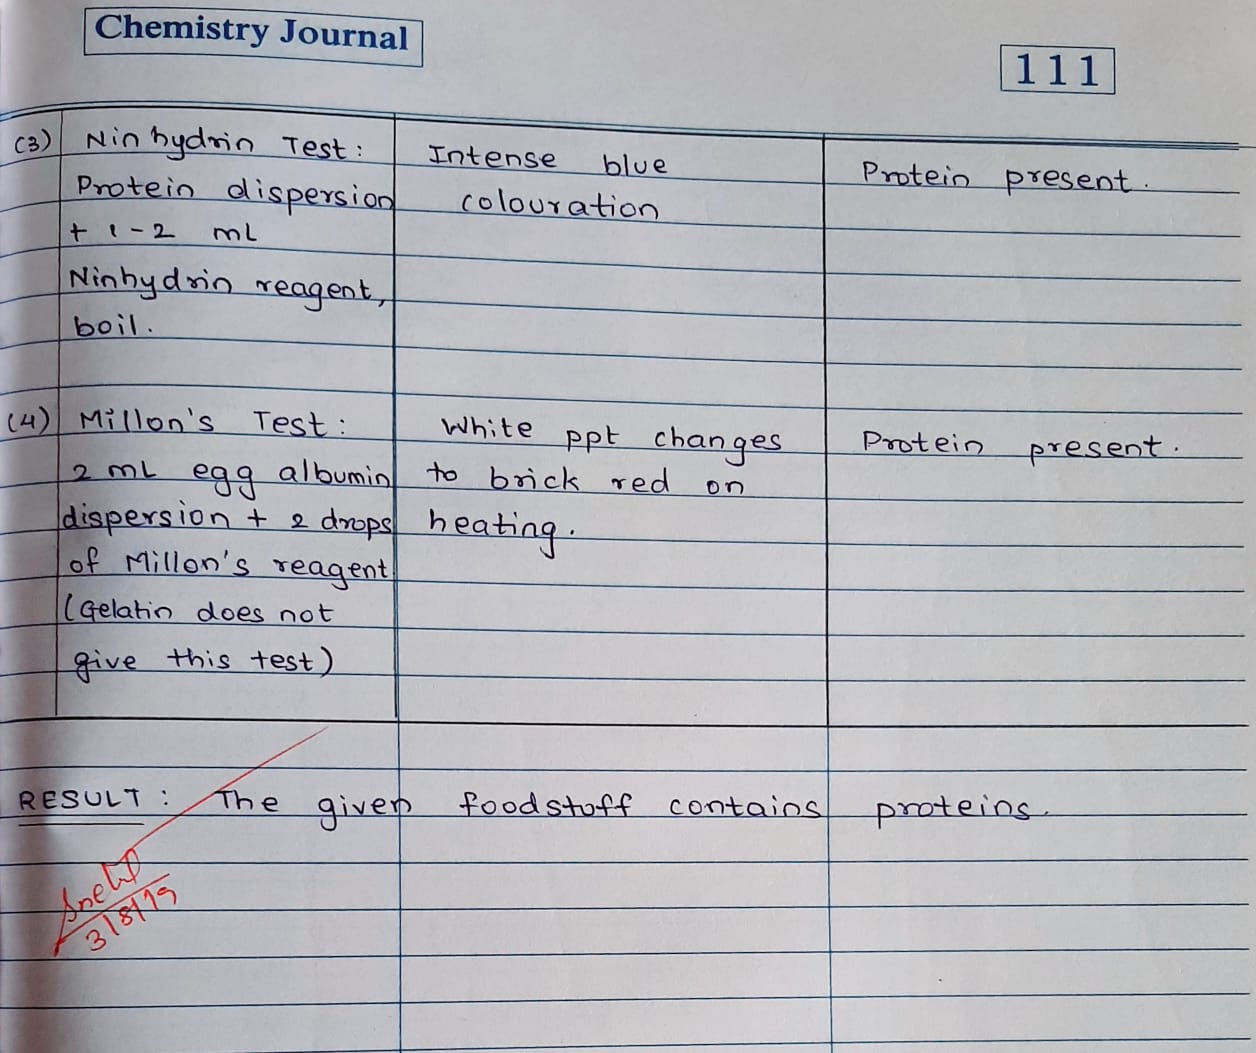 Chemistry Journal
111
(3) Ninhydrin Test : Intense blue Protein present.
Protein dispersion colouration
+ 1-2 mL
Ninhydrin reagent,
boil.
(4) Millon's Test : White ppt changes Protein present.
2 mL egg albumin to brick red on
dispersion + 2 drops heating.
of Millon's reagent
(Gelatin does not
give this test)
RESULT : The given foodstuff contains proteins.
3/8/19